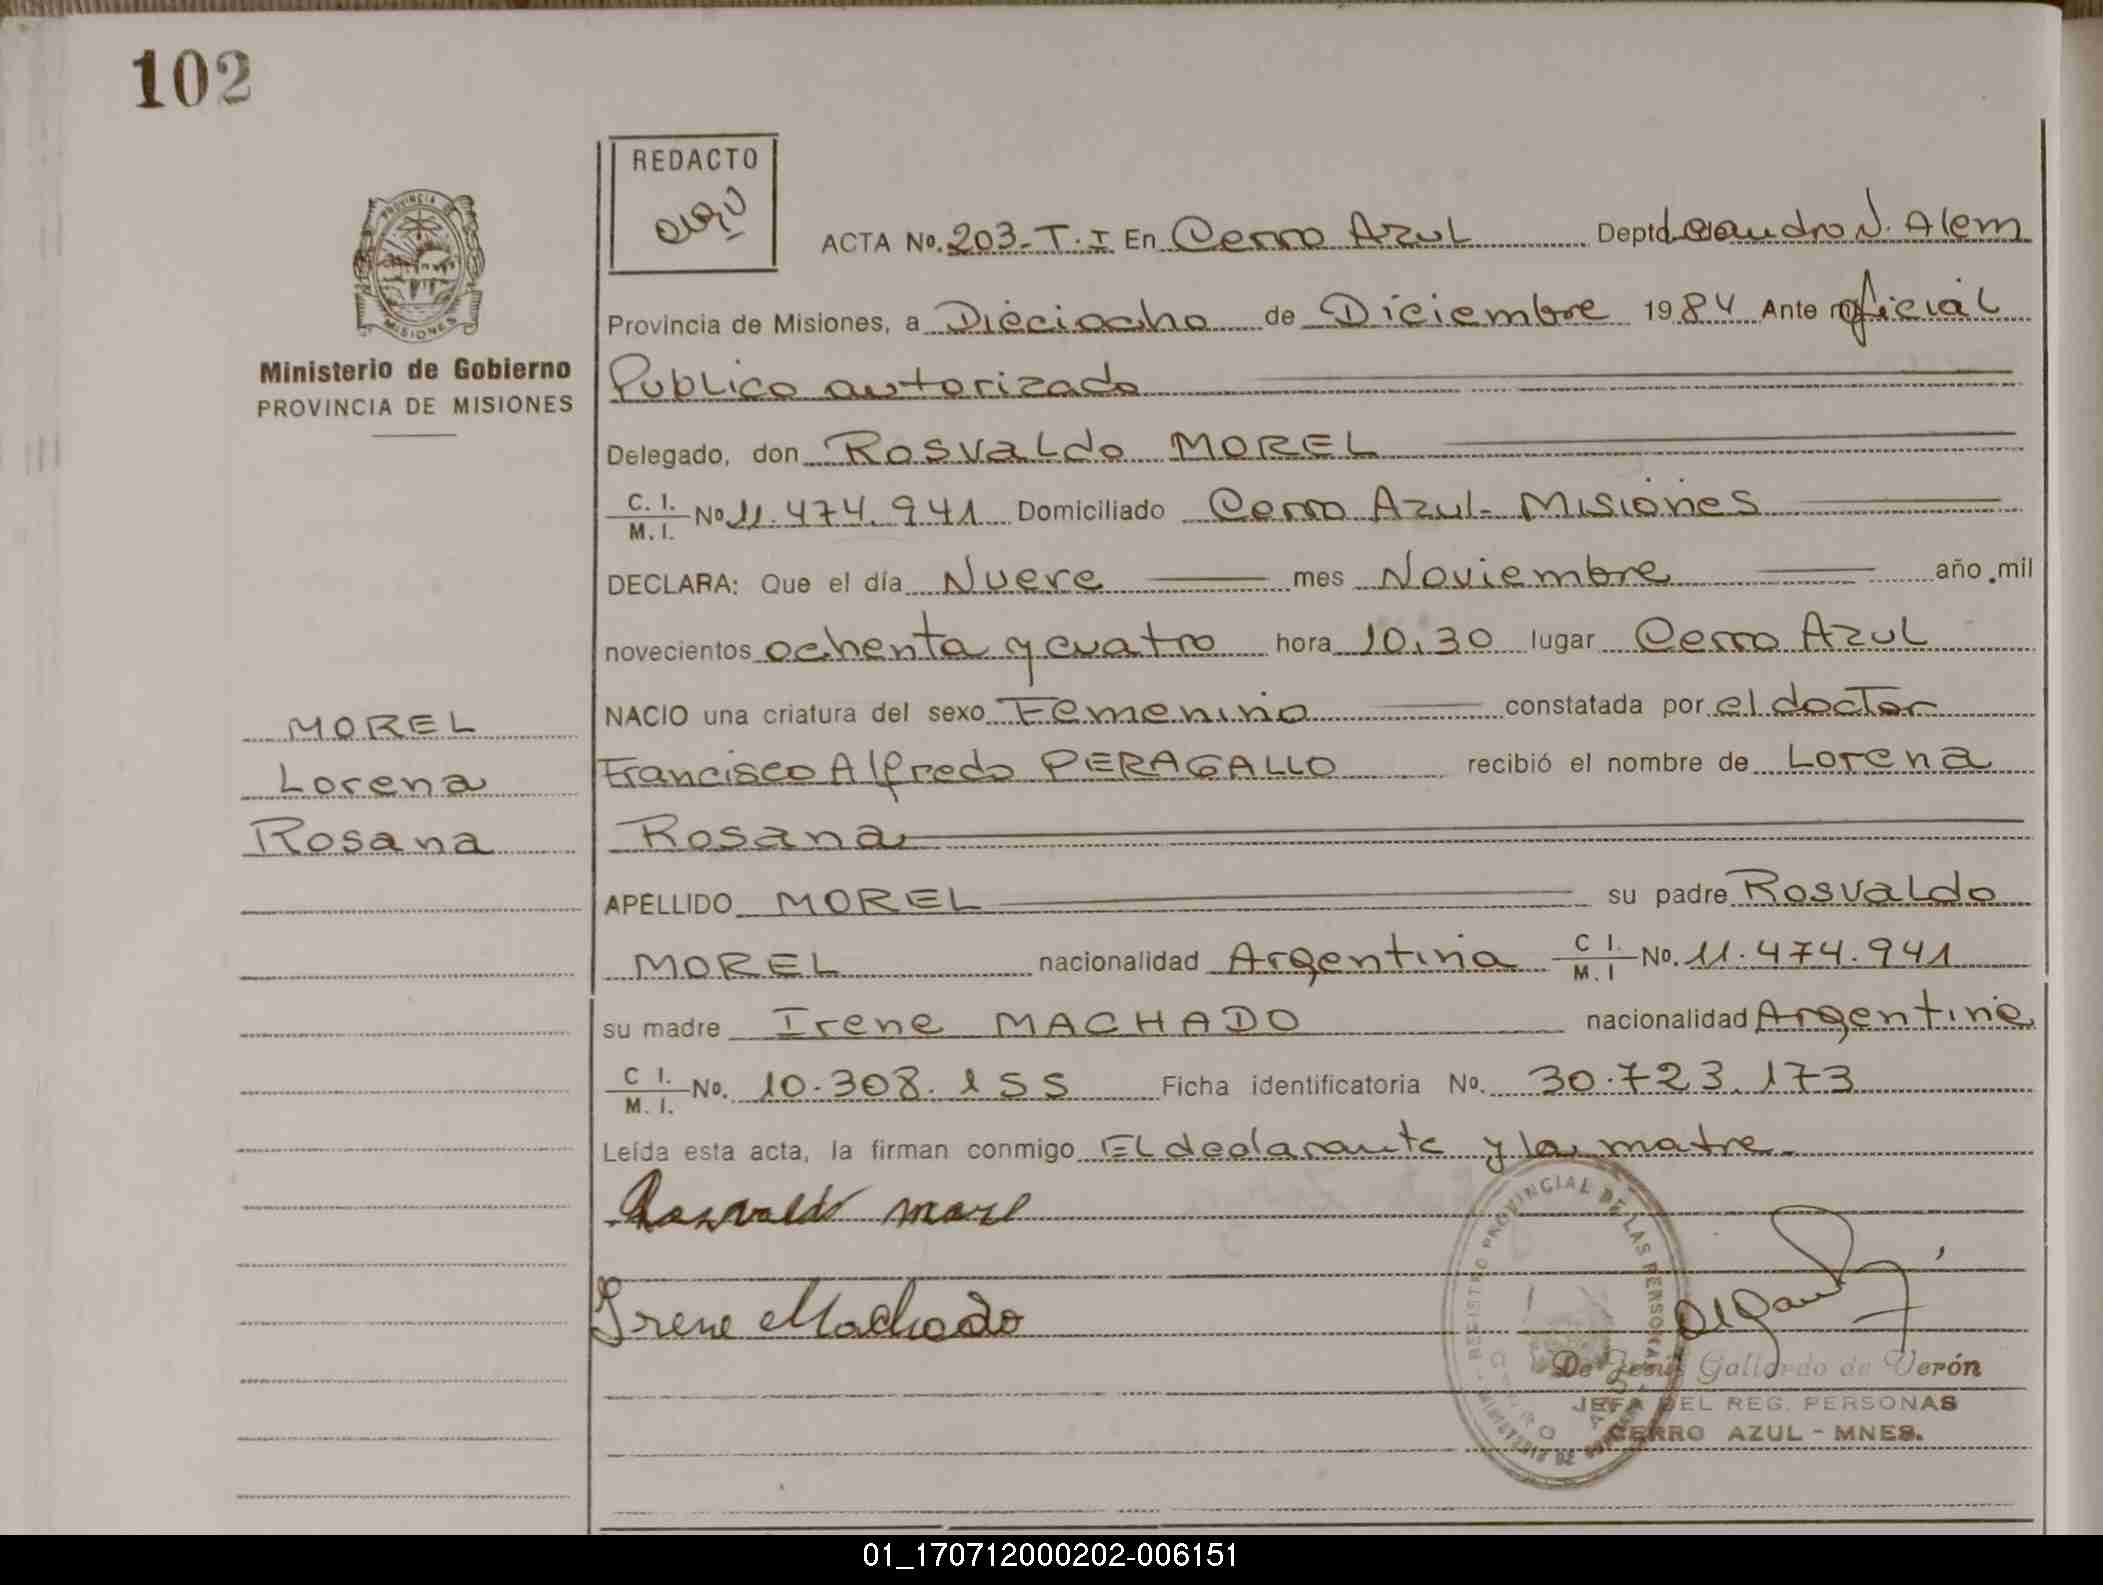 102
REDACTO
PROVINCIA DE
MISIONES
Ministerio de Gobierno
PROVINCIA DE MISIONES
ACTA No. 203-T.I En Cerro Azul Deptd Leandro N. Alem
Provincia de Misiones, a Dieciocho de Diciembre 1984 Ante mi oficial
Publico autorizado
Delegado, don Rosvaldo MOREL
C. I. M. I. No 11.474.941 Domiciliado Cerro Azul- Misiones
DECLARA: Que el día Nueve mes Noviembre año mil
novecientos ochenta y cuatro hora 10.30 lugar Cerro Azul
NACIO una criatura del sexo Femenino constatada por el doctor
Francisco Alfredo PERAGALLO recibió el nombre de Lorena
Rosana
APELLIDO MOREL su padre Rosvaldo
MOREL nacionalidad Argentina C I. M. I No. 11.474.941
su madre Irene MACHADO nacionalidad Argentina
C I. M. I. No. 10.308.155 Ficha identificatoria No. 30.723.173
Leída esta acta, la firman conmigo El declarante y la matre.
MOREL
Lorena
Rosana
Rosvaldo morel
Irene Machado
REGISTRO PROVINCIAL DE LAS PERSONAS
De Jesús Gallardo de Verón
JEFA DEL REG. PERSONAS
CERRO AZUL - MNES.
01_170712000202-006151